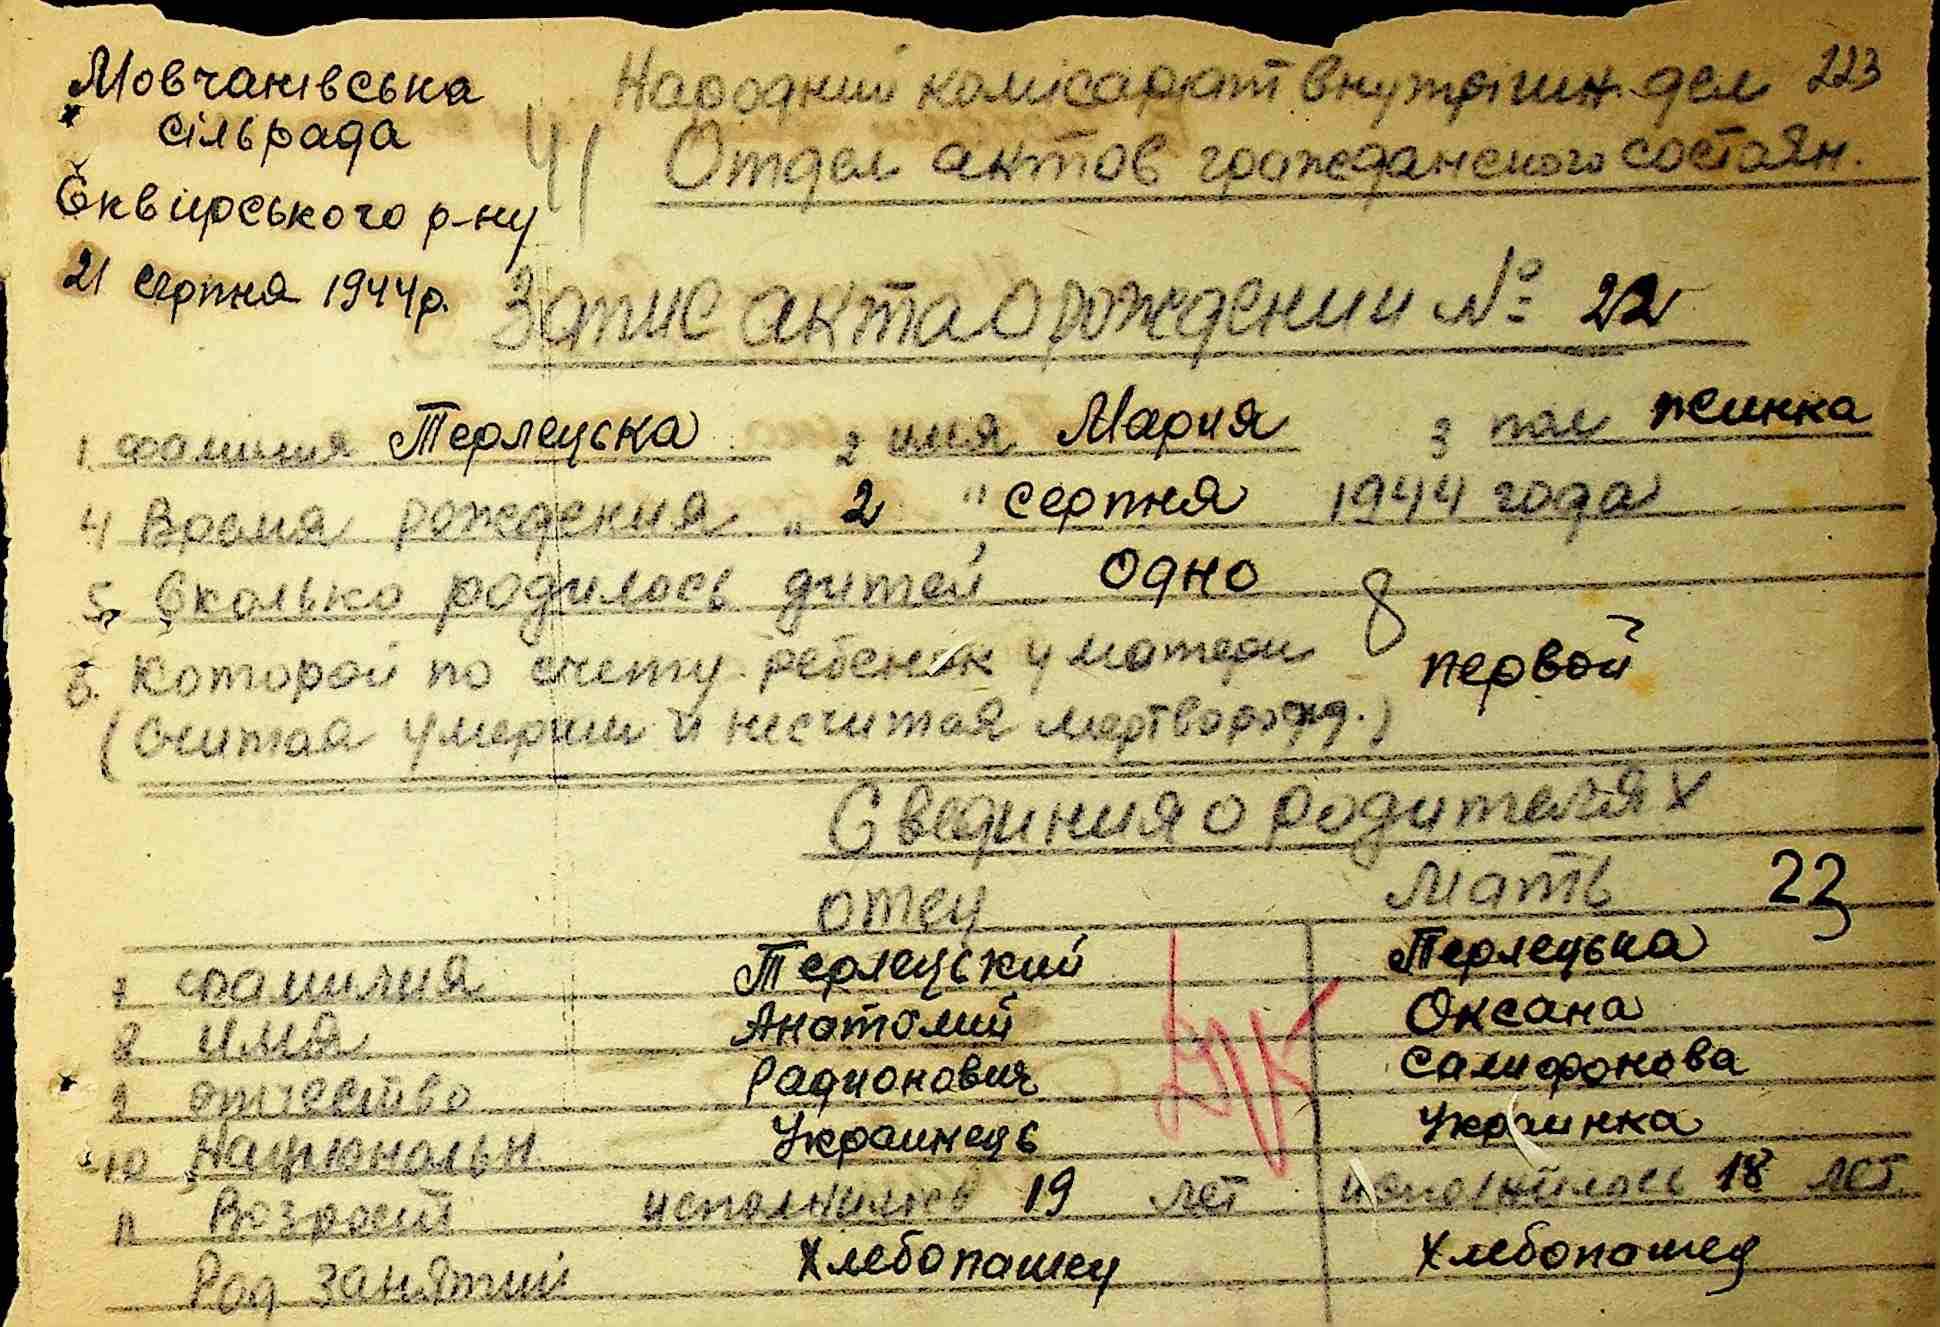 Мовчанівська
сільрада
Сквирського р-ну
21 серпня 1944р.
Народний комісаріат внутрішн. дел 223
Отдел актов гражданского состоян.
Запис акта о рождении № 22
1. фамилия Терлецька 2 имя Мария 3 пол жинка
4 Время рождения „ 2 " серпня 1944 года
5. Сколько родилось дитей Одно
6. Которой по счету ребенок у матери первой
(Считая умерши и несчитая мертворожд.)
Свединия о родителях
отец мать 22
7 Фамилия Терлецький Терлецька
8 имя Анатолий Оксана
9 отчество Радионович Самифонова
10 Национальн Украинець Украинка
11 Возраст исполнилос 19 лет исполнилось 18 лет
Род занятий Хлебопашец Хлебопашец